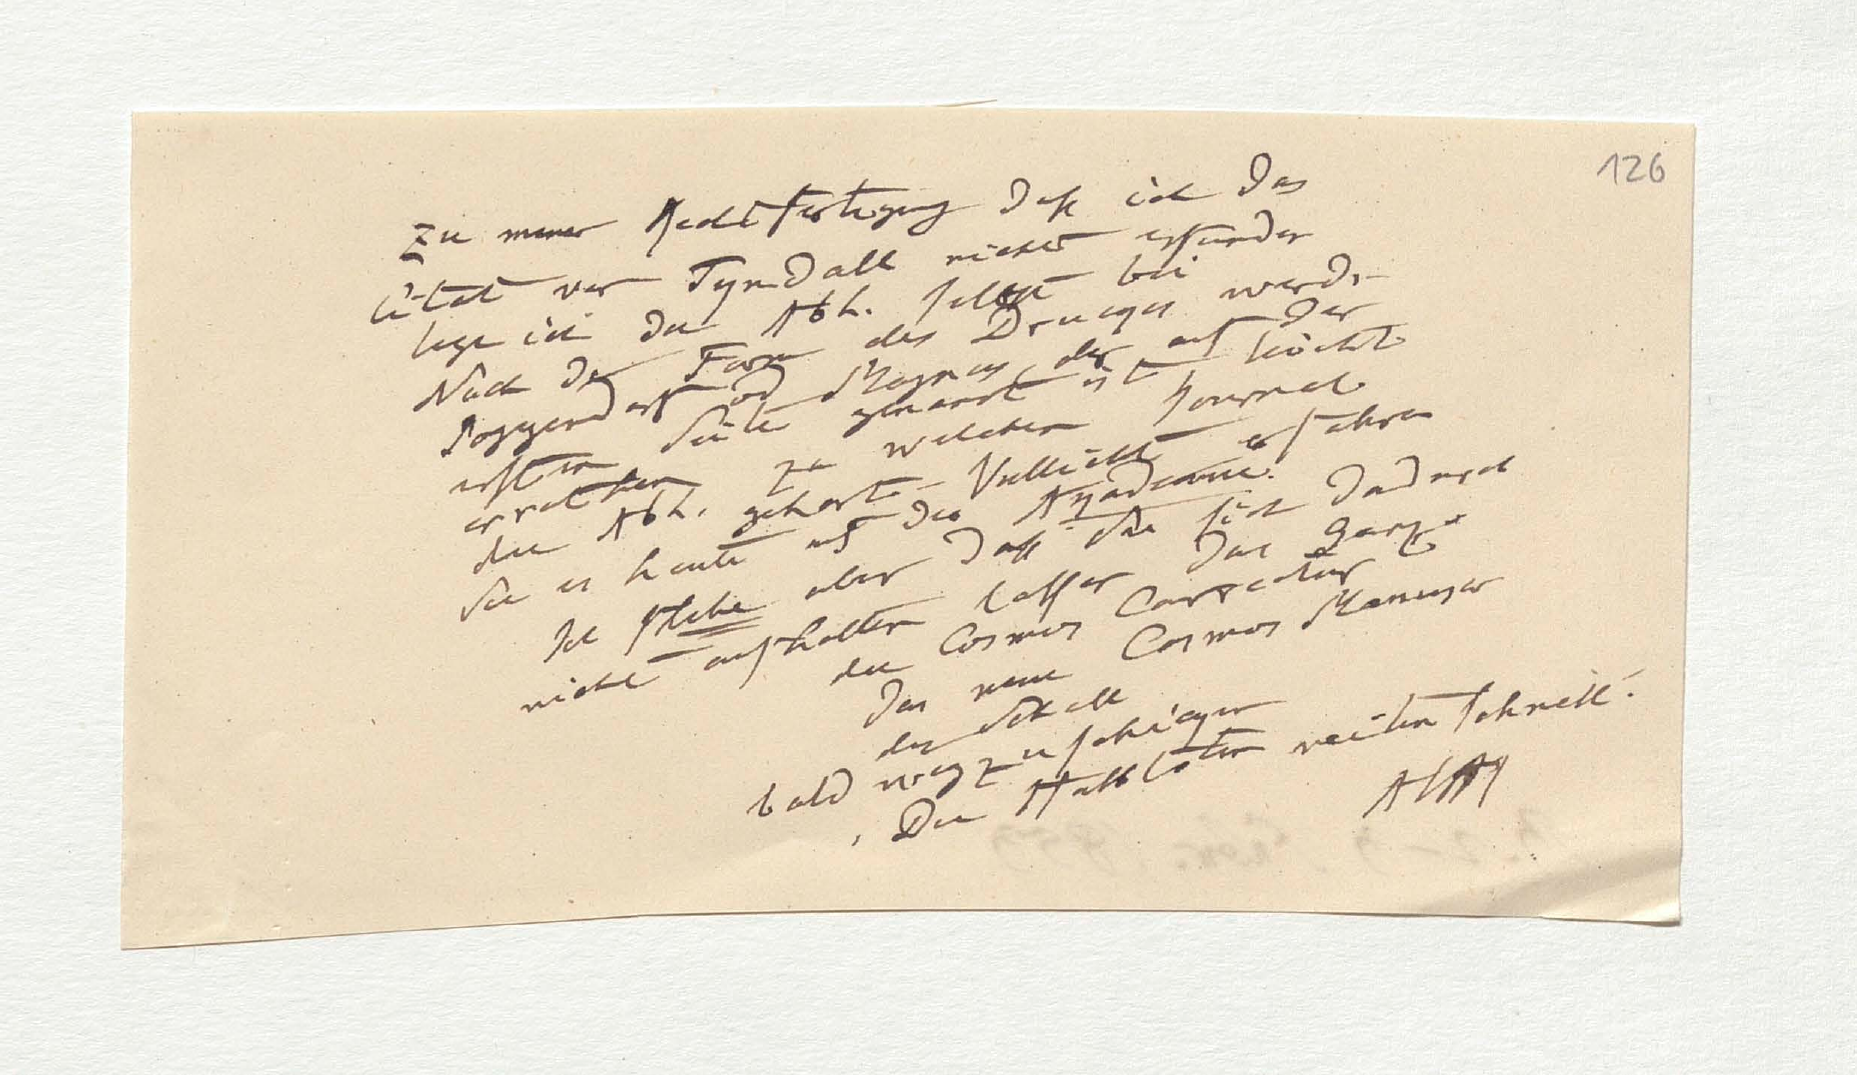 126
Zu meiner Rechtfertigung daß ich das
Citat von Tyndall nicht erfunden
lege ich die Abh. selbst bei
Nach der Form des Druckes werden
Poggendorff und Magnus, der auf der
ersten Seite genannt ist leicht
errathen zu welchem Journal
die Abh. gehört. Vielleicht erfahren
Sie es heute auf der Akademie.
Ich flehe aber daß Sie sich dadurch
nicht aufhalten lassen das ganze
der Cosmos Correctur
das neue Cosmos Manuscr
der Schelle
bald wegzuschicken
Die Halbtodten reiten schnell.
AHt